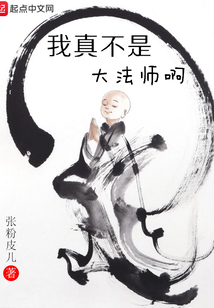 起点中文网
我真不是
大法师啊
张粉皮儿
著